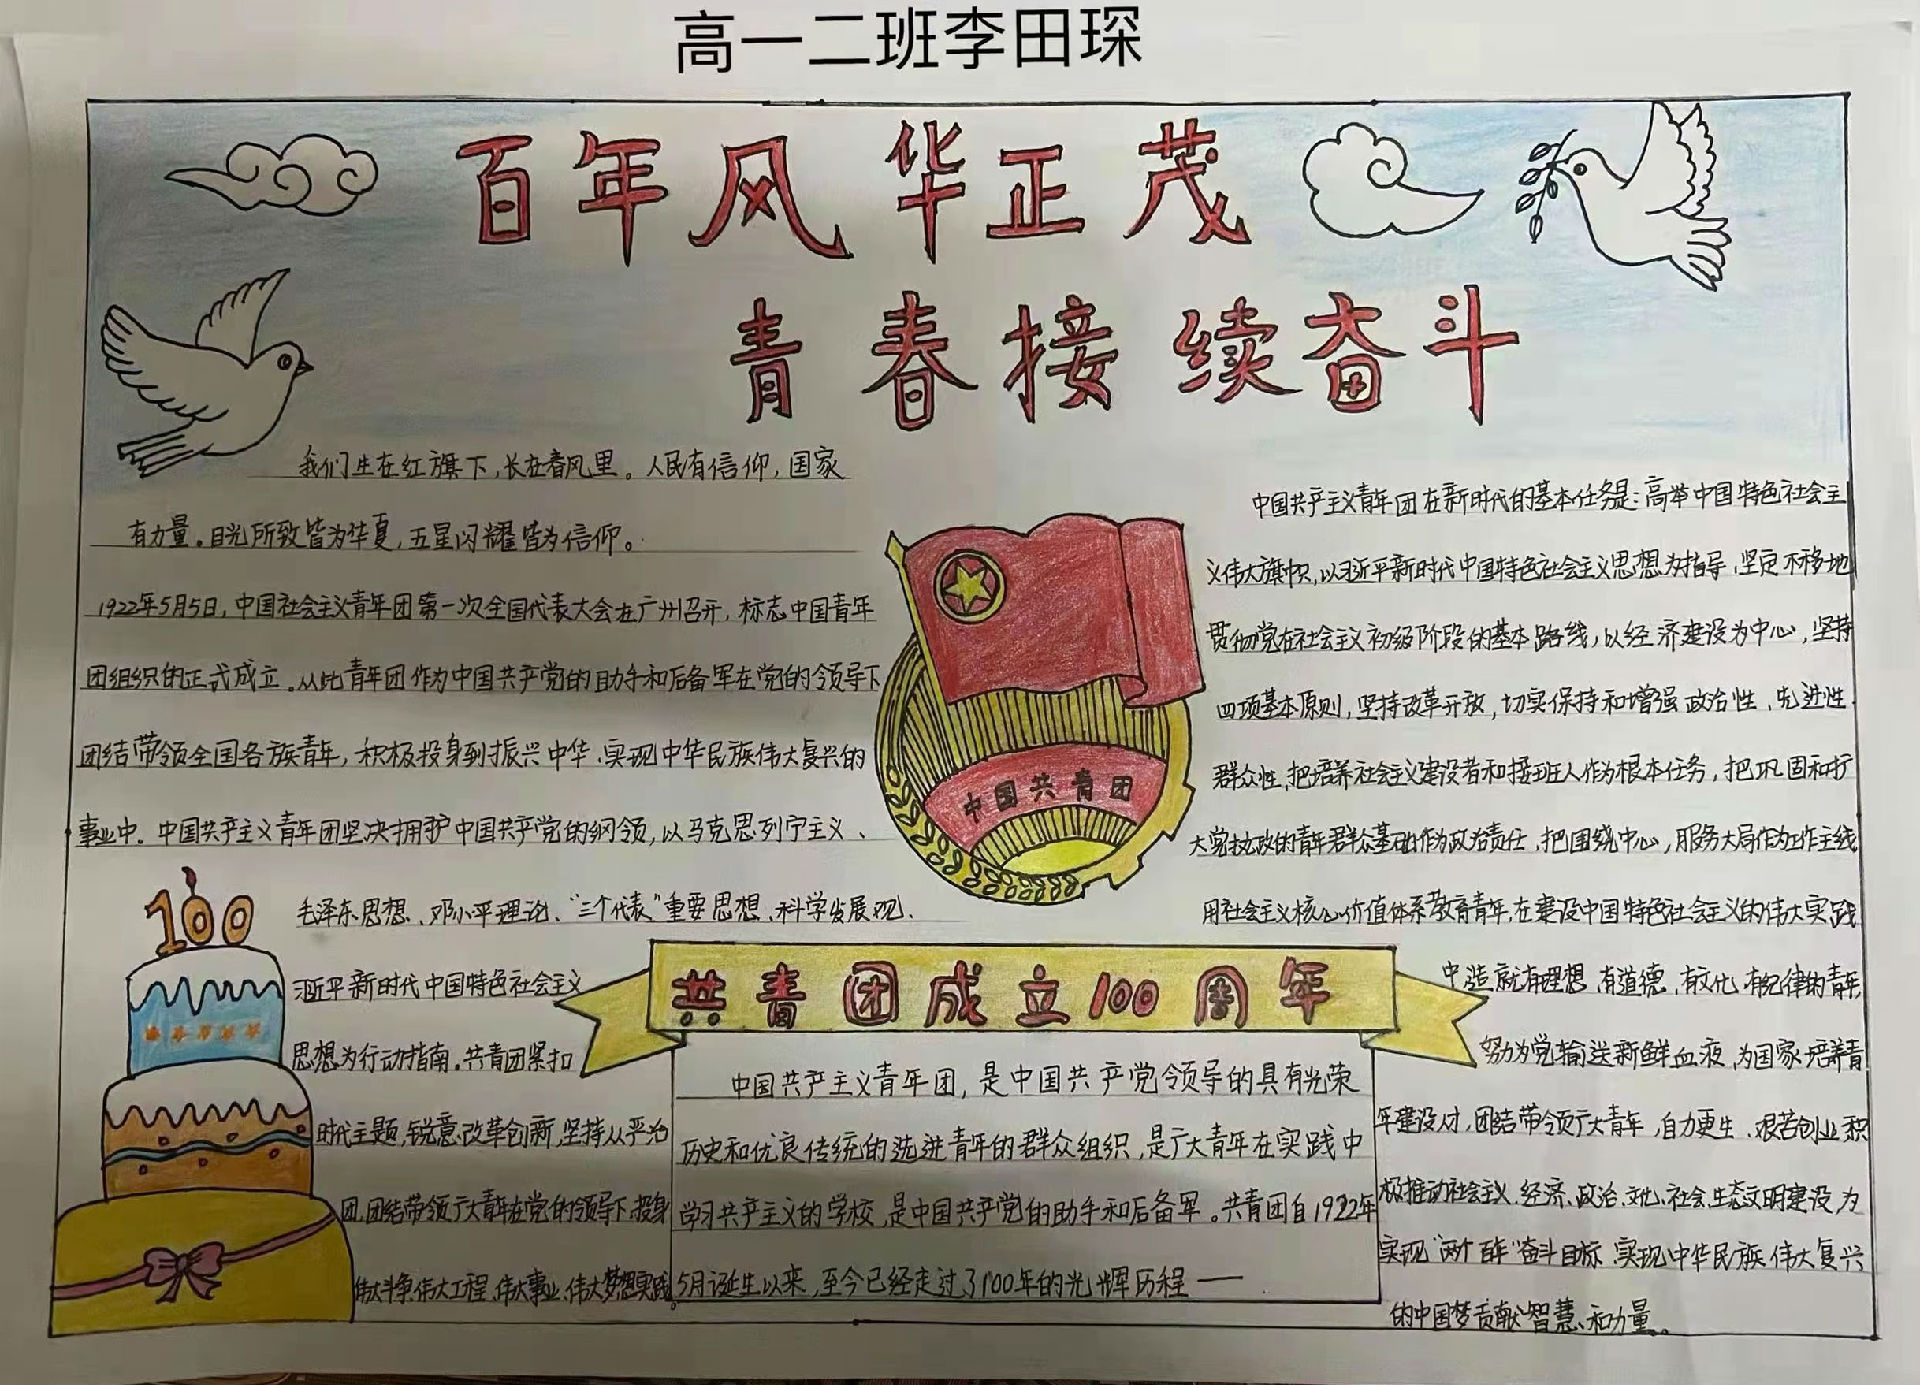 高一二班李田琛
百年风华正茂
青春接续奋斗
我们生在红旗下,长在春风里。人民有信仰,国家
有力量。目光所致皆为华夏,五星闪耀皆为信仰。
1922年5月5日,中国社会主义青年团第一次全国代表大会在广州召开,标志中国青年
团组织的正式成立。从此青年团作为中国共产党的助手和后备军在党的领导下
团结带领全国各族青年,积极投身到振兴中华、实现中华民族伟大复兴的
事业中。中国共产主义青年团坚决拥护中国共产党的纲领,以马克思列宁主义、
毛泽东思想、邓小平理论、“三个代表”重要思想、科学发展观、
习近平新时代中国特色社会主义
思想为行动指南。共青团紧扣
时代主题,锐意改革创新,坚持从严治
团,团结带领广大青年在党的领导下投身
伟大斗争、伟大工程、伟大事业、伟大梦想实践。
中国共青团
100
共青团成立100周年
中国共产主义青年团,是中国共产党领导的具有光荣
历史和优良传统的选进青年的群众组织,是广大青年在实践中
学习共产主义的学校,是中国共产党的助手和后备军。共青团自1922年
5月诞生以来,至今已经走过了100年的光辉历程——
中国共产主义青年团在新时代的基本任务是:高举中国特色社会主
义伟大旗帜,以习近平新时代中国特色社会主义思想为指导,坚定不移地
贯彻党在社会主义初级阶段的基本路线,以经济建设为中心,坚持
四项基本原则,坚持改革开放,切实保持和增强政治性、先进性、
群众性,把培养社会主义建设者和接班人作为根本任务,把巩固和扩
大党执政的青年群众基础作为政治责任,把围绕中心,服务大局作为工作主线
用社会主义核心价值体系教育青年,在建设中国特色社会主义的伟大实践
中造就有理想、有道德、有文化、有纪律的青年
努力为党输送新鲜血液,为国家培养青
年建设人才,团结带领广大青年,自力更生、艰苦创业,积
极推动社会主义经济、政治、文化、社会、生态文明建设,为
实现“两个百年”奋斗目标、实现中华民族伟大复兴
的中国梦贡献智慧、和力量。